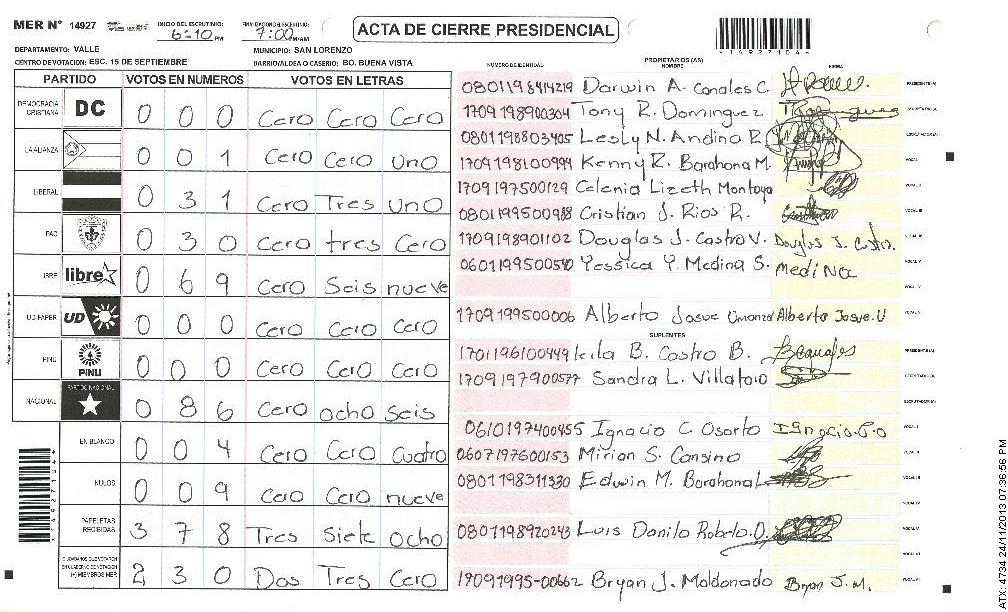 MER Nº 14927 INICIO DEL ESCRUTINIO: 6:10 PM FINALIZACION DEL ESCRUTINIO: 7:00 PM/AM
ACTA DE CIERRE PRESIDENCIAL
DEPARTAMENTO: VALLE MUNICIPIO: SAN LORENZO
CENTRO DE VOTACION: ESC. 15 DE SEPTIEMBRE BARRIO/ALDEA O CASERIO: BO. BUENA VISTA
PARTIDO VOTOS EN NUMEROS VOTOS EN LETRAS
DEMOCRACIA CRISTIANA DC 0 0 0 Cero Cero Cero
LA ALIANZA 0 0 1 Cero Cero Uno
LIBERAL 0 3 1 Cero Tres Uno
PAC 0 3 0 Cero tres Cero
LIBRE libre 0 6 9 Cero Seis nueve
UD-FAPER UD 0 0 0 Cero Cero Cero
PINU PINU 0 0 0 Cero Cero Cero
NACIONAL PARTIDO NACIONAL 0 8 6 Cero ocho seis
EN BLANCO 0 0 4 Cero Cero Cuatro
NULOS 0 0 9 Cero Cero nueve
PAPELETAS RECIBIDAS 3 7 8 Tres Siete ocho
CIUDADANOS QUE VOTARON EN CUADERNO DE VOTACION (+) MIEMBROS MER 2 3 0 Dos Tres Cero
PROPIETARIOS (AS)
NUMERO DE IDENTIDAD NOMBRE FIRMA
0801198414219 Darwin A. Canales C. PRESIDENTE(A)
1709198900304 Tony R. Dominguez SECRETARIO(A)
0801198803405 Lesly N. Andino R. ESCRUTADOR(A)
1709198100999 Kenny R. Barahona M. VOCAL I
1709197500129 Celenia Lizeth Montoya VOCAL II
0801199500988 Cristian J. Rios R. VOCAL III
1709198901102 Douglas J. Castro V. Douglas J. Castro. VOCAL IV
0601199500540 Yessica Y. Medina S. Medina VOCAL V
1709199500006 Alberto Josue Umanza Alberto Josue.U
SUPLENTES
1701196100449 leila B. Castro B. PRESIDENTE(A)
1709197900577 Sandra L. Villatoro SECRETARIO(A)
ESCRUTADOR(A)
0610197400455 Ignacio C Osorto Ignacio.C.O VOCAL I
0607197600153 Mirian S. Cansino VOCAL II
0801198311330 Edwin M. Barahona L VOCAL III
0801198920243 Luis Danilo Robelo.O. VOCAL V
17091995-00662 Bryan J. Maldonado Bryan J.M.
149271044
ATX: 4734 24/11/2013 07:36:56 PM